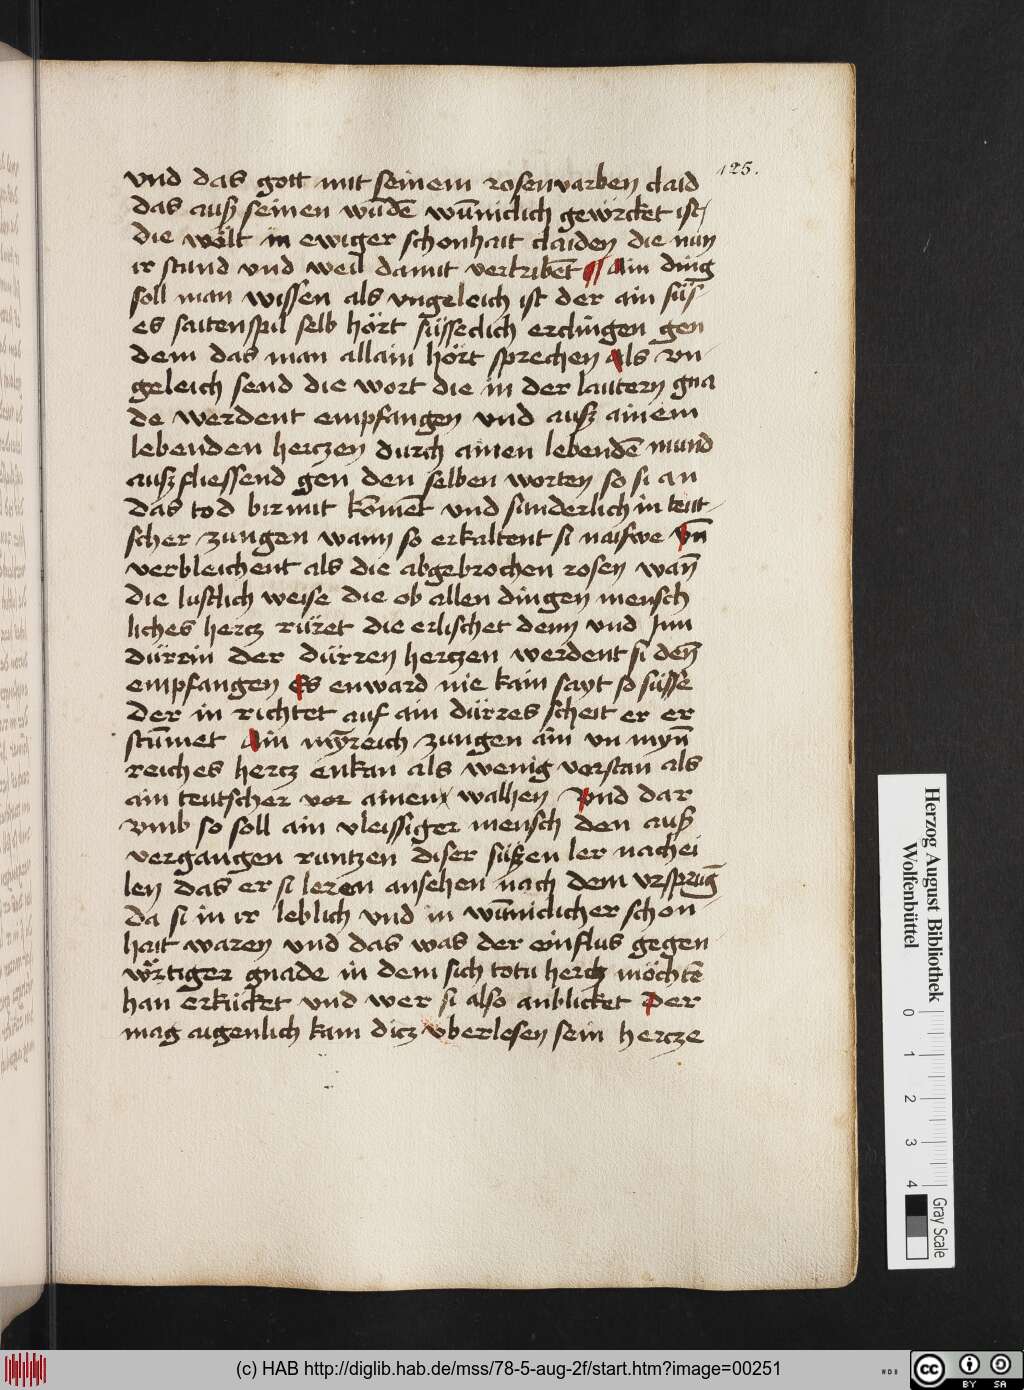 125.
vnd das gott mit seinem rosenvarben claid
das auß seinen wūdē wūniclich gewürcket ist
die wält in ewiger schonhait claiden die nun
ir stund vnd weil damit vertribēt ¶ Ain ding
soll man wissen als vngeleich ist der ain süs¬
es saitenspil selb hört süsseclich erclingen gen
dem das man allain hört sprechen als vn¬
geleich send die wort die in der lautern gna
de werdent empfangen vnd auß ainem
lebenden herczen durch ainen lebendē mund
außfliessend gen den selben worten so si an
das tod birmit kōmēt vnd sunderlich in teut¬
scher zungen wann so erkaltent si naiswe vn̄
verbleichent als die abgebrochen rosen wan̄
die lustlich weise die ob allen dingen mensch
liches hercz rüret die erlischet denn vnd Inn
dürrin der dürren herczen werdent si den̄
empfangen Es enward nie kain sayt so süsse
der in richtet auf ain dürres scheit er er
stūmet Ain myn̄reich zungen ain vn myn̄
reiches hercz enkan als wenig verstan als
ain teutscher vor ainem walhen Vnd dar
vmb so soll ain vleissiger mensch den auß
vergangen runtzen diser süßen ler nachei
len das er si leren ansehen nach dem vrsprūg
da si in ir leblich vnd in wūniclicher schon¬
hait waren vnd das was der einflus gegen
würtiger gnade in dem sich totu hercz möchtē
han erkücket vnd wer si also anblicket Der
mag aigenlich kam dicz vberlesen sein hercze
Herzog August Bibliothek
Wolfenbüttel
0 1 2 3 4
Gray Scale
(c) HAB http://diglib.hab.de/mss/78-5-aug-2f/start.htm?image=00251
WDB
cc BY SA